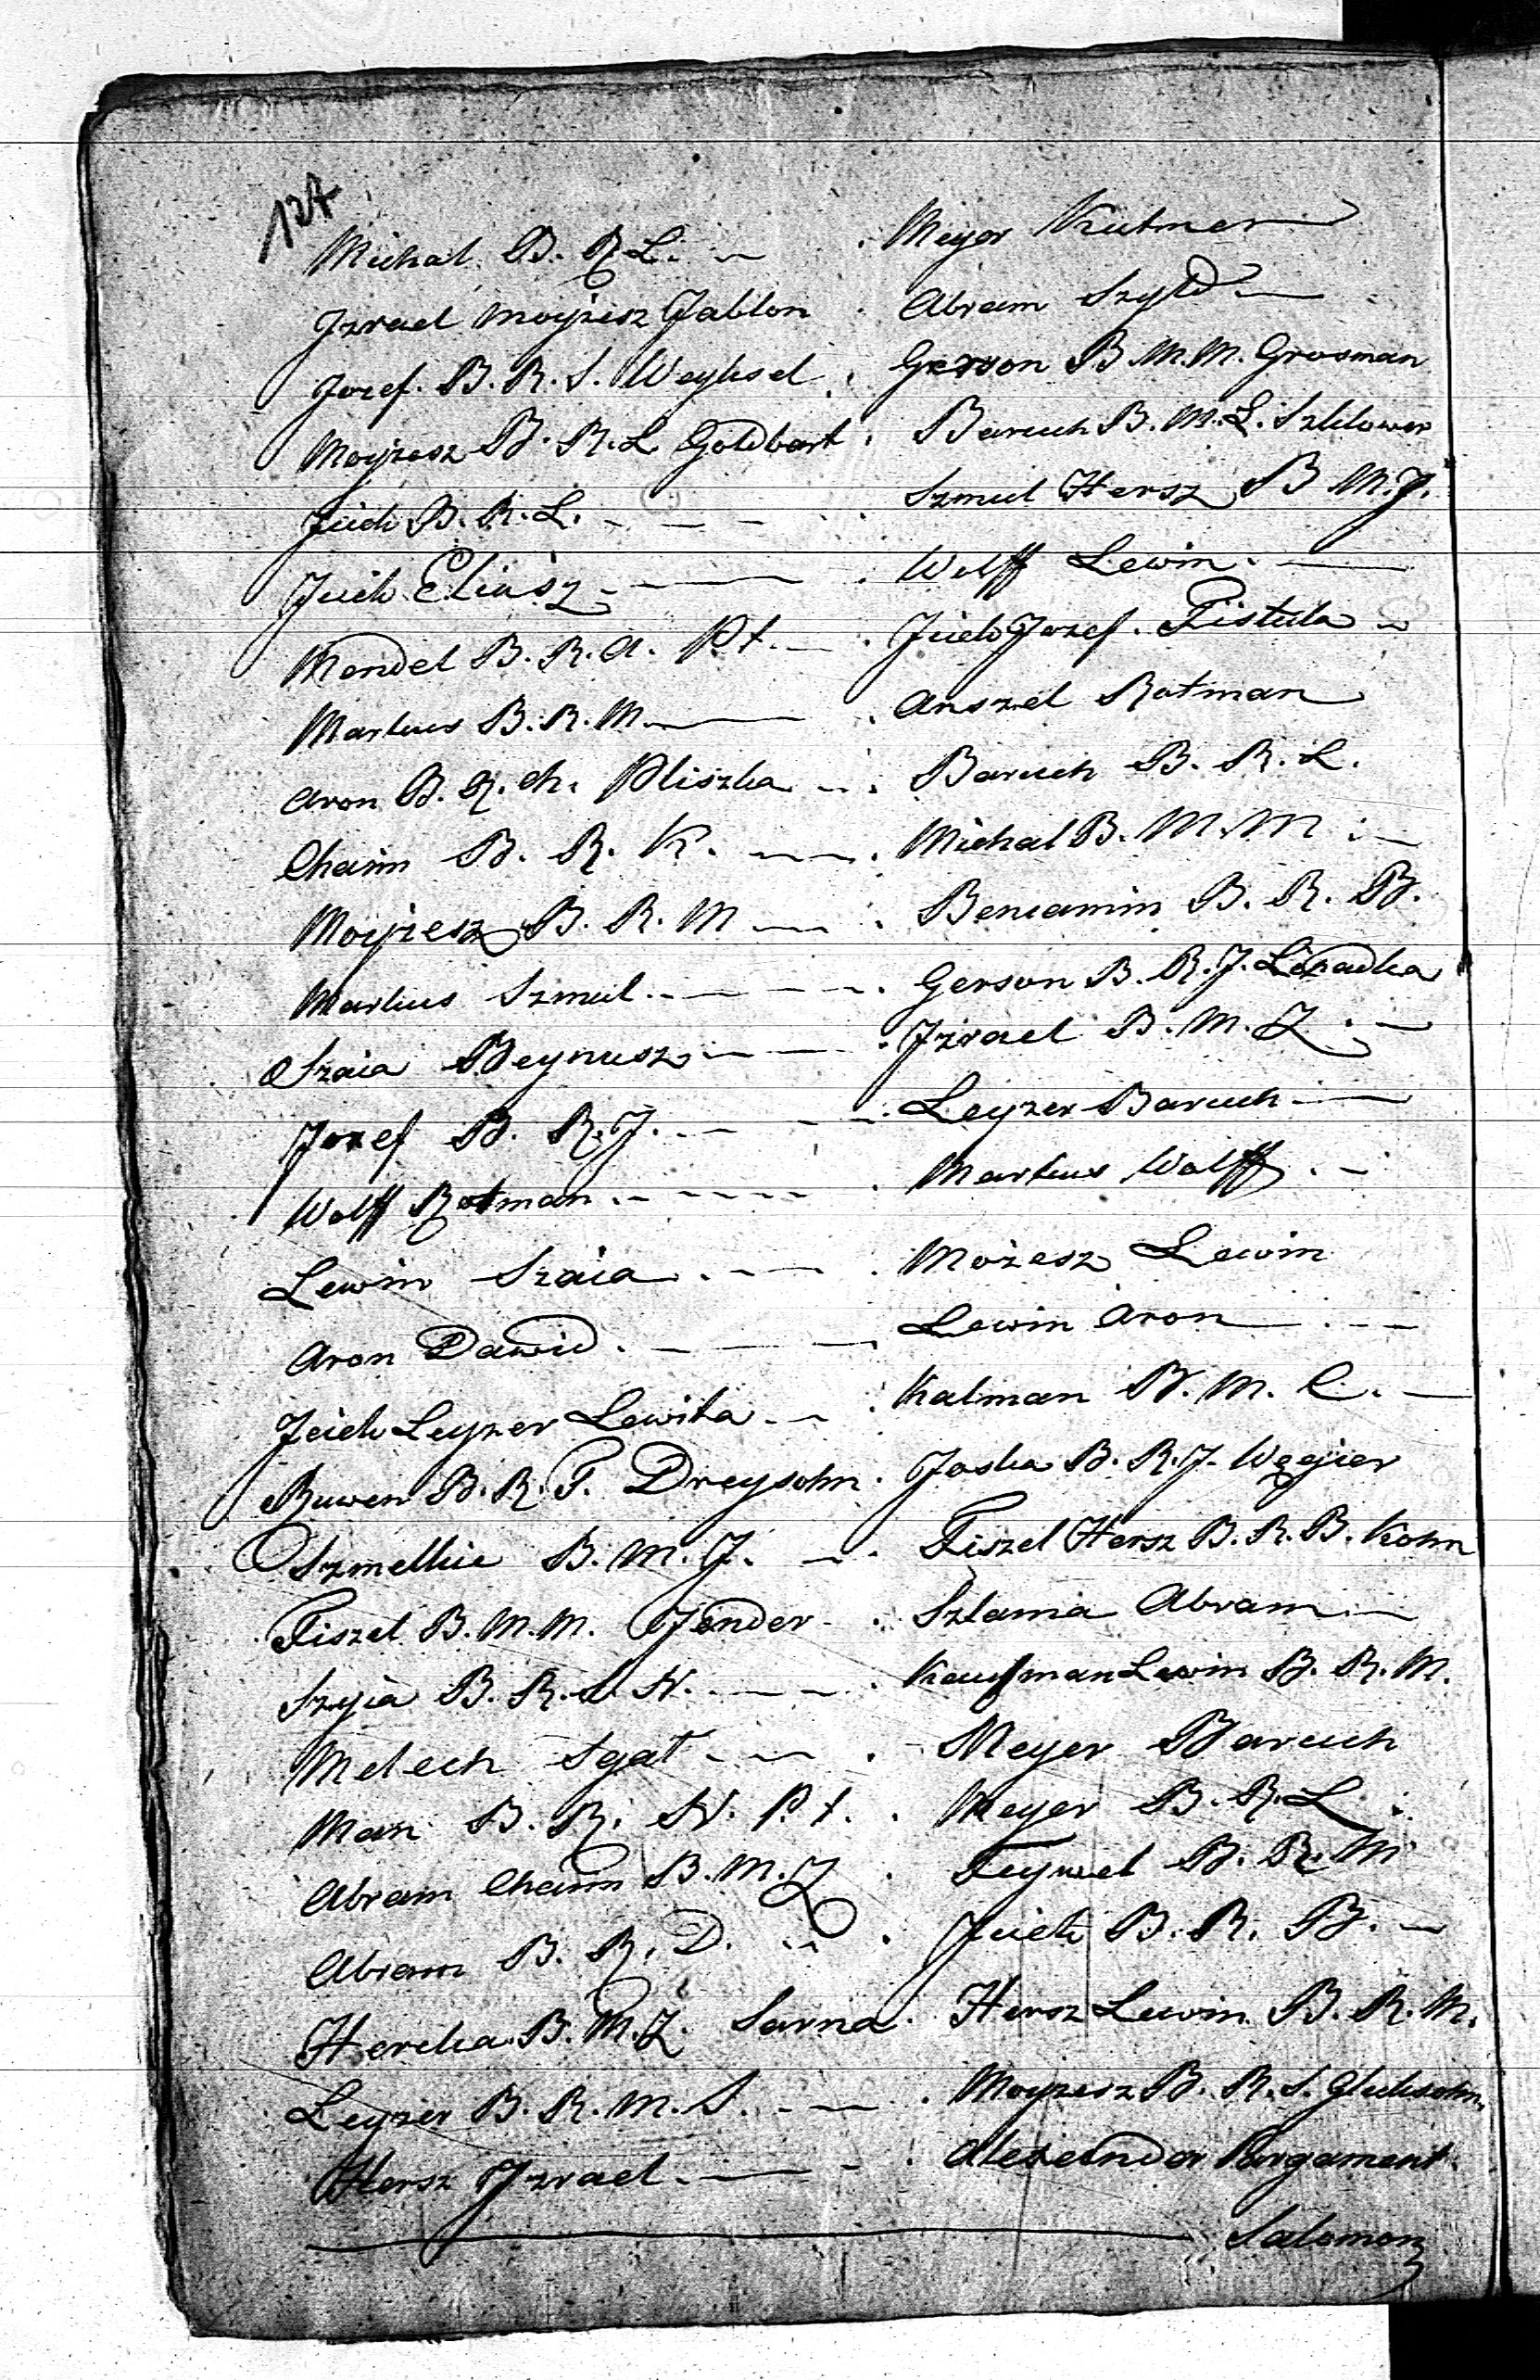 137
Michał B. R. L. — . Meyer Kutner
Jzrael Moyżesz Jabłon . Abram Szyld —
Jozef B. R. S. Weyksel . Gerson B. M. M. Grosman
Moyżesz B. R. L. Goldbart . Baruch B. M. L. Szklower
Jcick B. R. L. - - - . Szmul Hersz B M. J.
Jcick Eliasz - — . Wolff Lewin . —
Mendel B. R. A. Pt. — . Jcick Jozef Fistuła ~
Markus B. R. M. — . Anszel Rotman
Aron B. R. Ch. Pliszka - . Baruch B. R. L.
Chaim B. R. K. - — . Michał B. M. M . —
Moyżesz B. R. M — . Beniamin B. R. B.
Markus Szmul . - - - - . Gerson B. R. J.
Szaia Beynusz - — . Jzrael B. M. J . —
Jozef B. R. J. - - - . Leyzer Baruch —
Wolff Rotman . - - - - . Markus Wolff . —
Lewin Szaia . - — . Możesz Lewin
Aron Dawid . - - — Lewin Aron . —
Jcick Leyzer Lewita - ~ . Kalman B. M. C. —
Ruwen B. R. F. Dreysohn . Joska B. R. J. Węgier
Szmelkie B. M. J. — . Fiszel Hersz B. R. B. Kohn
Fiszel B. M. M. Jender . Szlama Abram . —
Szyia B. R. S. N. - — . Kaufman Lewin B. R. M.
Melech Sgał - — . Meyer Baruch
Man B. R. N. Pt. . Meyer B. R. L .
Abram Chaim B. M. J . Feywel B. R. M
Abram B. R. D. .. . Jcick B. R. B. —
Hercka B. M. J. Sarna . Hersz Lewin B. R. M.
Leyzer B. R. M. S. - — . Moyżesz B. R. S. Gluksohn
Hersz Jzrael . — - . Alexander Pargament
Salomon